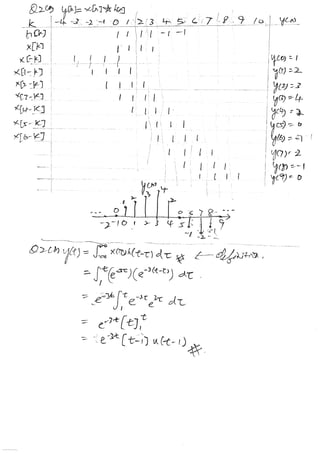 Q2(a) y[k]=x[k]*h[k]
k -4 -3 -2 -1 0 1 2 3 4 5 6 7 8 9 10 y(n)
h[k] 1 1 1 1 -1 -1
x[k] 1 1 1 1
x[-k] 1 1 1 1 y(0)=1
x[1-k] 1 1 1 1 y(1)=2
x[2-k] 1 1 1 1 y(2)=3
x[3-k] 1 1 1 1 y(3)=4
x[4-k] 1 1 1 1 y(4)=2
x[5-k] 1 1 1 1 y(5)=0
x[6-k] 1 1 1 1 y(6)=-1
1 1 1 1 y(7)=-2
1 1 1 1 y(8)=-1
1 1 1 1 y(9)=0
y(n)
... 0 1 2 3 4 2 0 6 7 8 ...
-2 -1 0 1 2 3 4 5 -1 -2 -1 9
Q2(b) y(t) = ∫ x(τ)h(t-τ) dτ # ← definition.
= ∫₁ᵗ (e^-3τ)(e^-3(t-τ)) dτ
= e^-3t ∫₁ᵗ e^-3τ e^3τ dτ
= e^-3t [t]₁ᵗ
= e^-3t [t-1] u(t-1) #